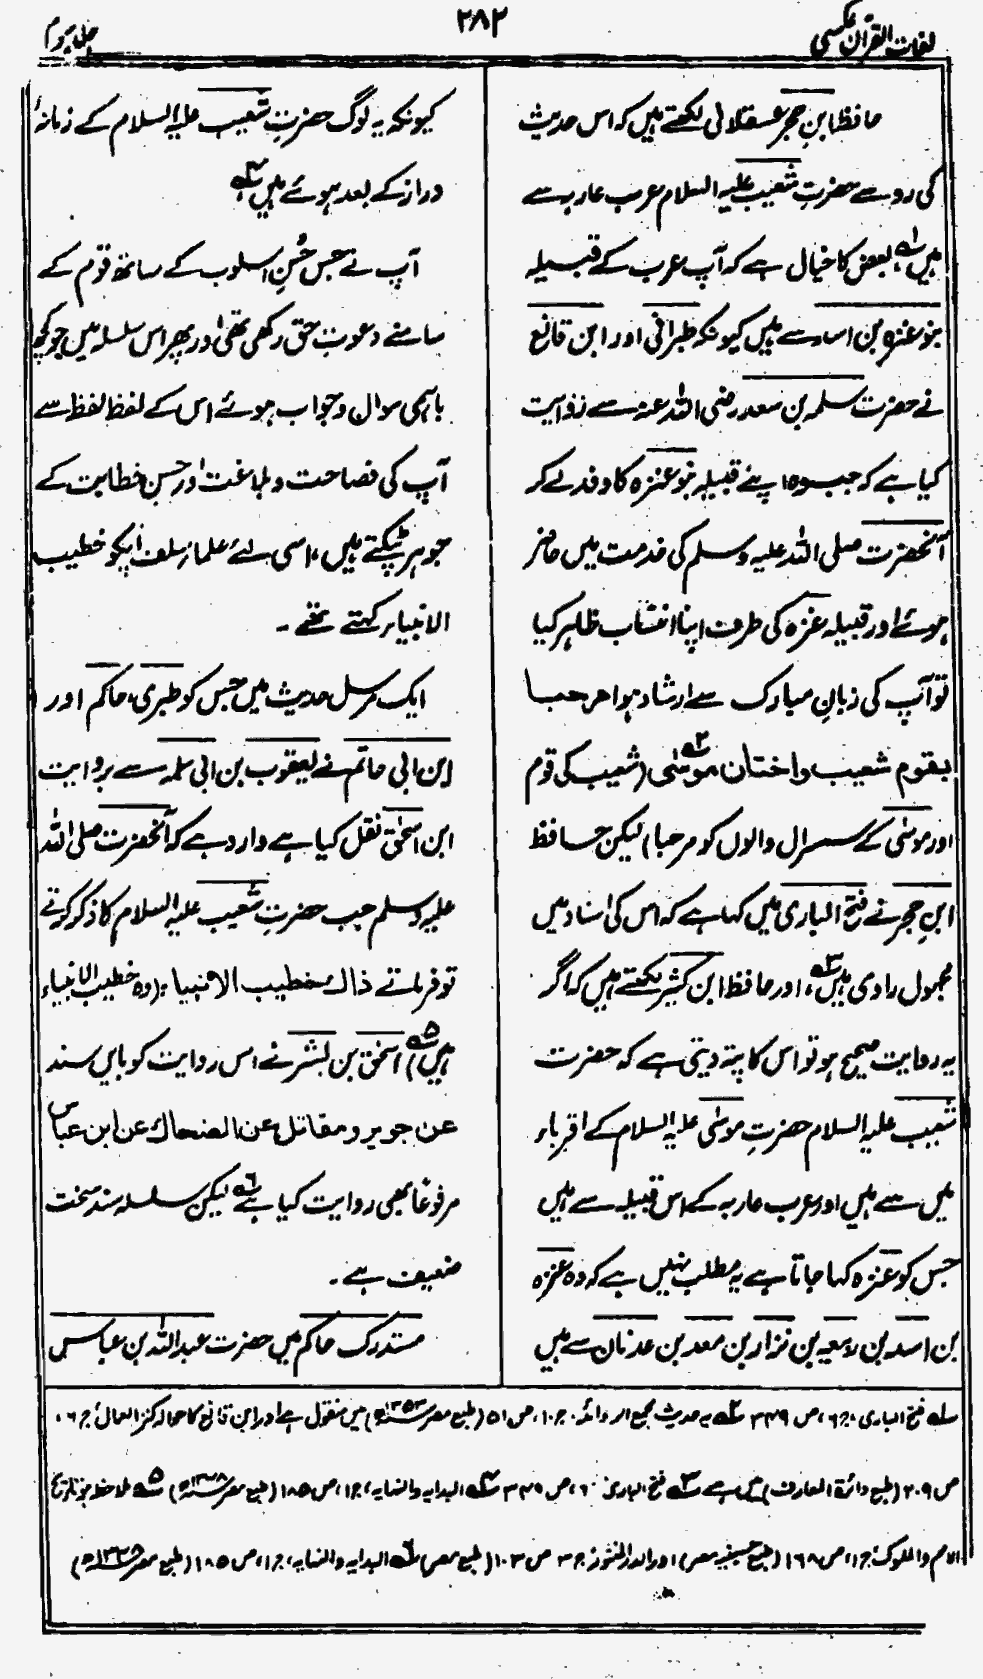 لغات القرآن عکسی
۲۸۲
جلد سوم
حافظ ابنِ حجر عسقلانی لکھتے ہیں کہ اس حدیث
کی رو سے حضرتِ شعیب علیہ السلام عرب عاربہ سے
ہیں ۱؎ بعض کا خیال ہے کہ آپ عرب کے قبیلہ
بنو عنزہ بن اسد سے ہیں کیونکہ طبرانی اور ابن قانع
نے حضرت سلمہ بن سعد رضی اللہ عنہ سے روایت
کیا ہے کہ جب وہ اپنے قبیلہ بنو عنزہ کا وفد لے کر
آنحضرت صلی اللہ علیہ وسلم کی خدمت میں حاضر
ہوئے اور قبیلہ عنزہ کی طرف اپنا انتساب ظاہر کیا
تو آپ کی زبانِ مبارک سے ارشاد ہوا مرحبا
بقوم شعیب واختان موسٰی ۲؎ (شعیب کی قوم
اور موسٰی کے سسرال والوں کو مرحبا) لیکن حافظ
ابنِ حجر نے فتح الباری میں کہا ہے کہ اس کی اسناد میں
مجہول راوی ہیں ۳؎، اور حافظ ابن کثیر لکھتے ہیں کہ اگر
یہ روایت صحیح ہو تو اس کا پتہ دیتی ہے کہ حضرت
شعیب علیہ السلام حضرتِ موسٰی علیہ السلام کے اقرباء
میں سے ہیں اور عرب عاربہ کے اس قبیلہ سے ہیں
جس کو عنزہ کہا جاتا ہے یہ مطلب نہیں ہے کہ وہ عنزہ
بن اسد بن ربیعہ بن نزار بن معد بن عدنان سے ہیں
کیونکہ یہ لوگ حضرتِ شعیب علیہ السلام کے زمانۂ
دراز کے بعد ہوئے ہیں ۴؎
آپ نے جس حُسنِ اسلوب کے ساتھ قوم کے
سامنے دعوتِ حق رکھی تھی اور پھر اس سلسلہ میں جو کچھ
باہمی سوال و جواب ہوئے اس کے لفظ لفظ سے
آپ کی فصاحت و بلاغت اور حسنِ خطابت کے
جوہر ٹپکتے ہیں، اسی لئے علماءِ سلف آپکو خطیب
الانبیاء کہتے تھے ۔
ایک مرسل حدیث میں جس کو طبری، حاکم اور
ابن ابی حاتم نے یعقوب بن ابی سلمہ سے بروایت
ابن اسحٰق نقل کیا ہے وارد ہے کہ آنحضرت صلی اللہ
علیہ وسلم جب حضرتِ شعیب علیہ السلام کا ذکر کرتے
تو فرماتے ذاك خطیب الانبیا: (وہ خطیب الانبیاء
ہیں) ۵؎ اسحٰق بن بشر نے اس روایت کو بایں سند
عن جویبر و مقاتل عن الضحاك عن ابن عباس
مرفوعًا بھی روایت کیا ہے ۶؎ لیکن سلسلہ سند سخت
ضعیف ہے ۔
مستدرک حاکم میں حضرت عبد اللہ بن عباس
۱؎ فتح الباری، ج ۶، ص ۳۳۹ ۲؎ یہ حدیث مجمع الزوائد، ج ۱۰، ص ۵۱ (طبع مصر ۱۳۵۳ھ) میں منقول ہے اور ابن قانع کا حوالہ کنز العمال، ج ۶،
ص ۲۰۹ (طبع دائرۃ المعارف) میں ہے ۳؎ فتح الباری ۶، ص ۳۳۹ ۴؎ البدایہ والنہایہ، ج ۱، ص ۱۸۵ (طبع مصر ۱۳۴۸ھ) ۵؎ ملاحظہ ہو تاریخ
الامم والملوک، ج ۱، ص ۱۶۸ (طبع حسینیہ مصر) اور الدر المنثور، ج ۳، ص ۱۰۳ (طبع مصر) ۶؎ البدایہ والنہایہ، ج ۱، ص ۱۸۵ (طبع مصر ۱۳۴۸ھ)